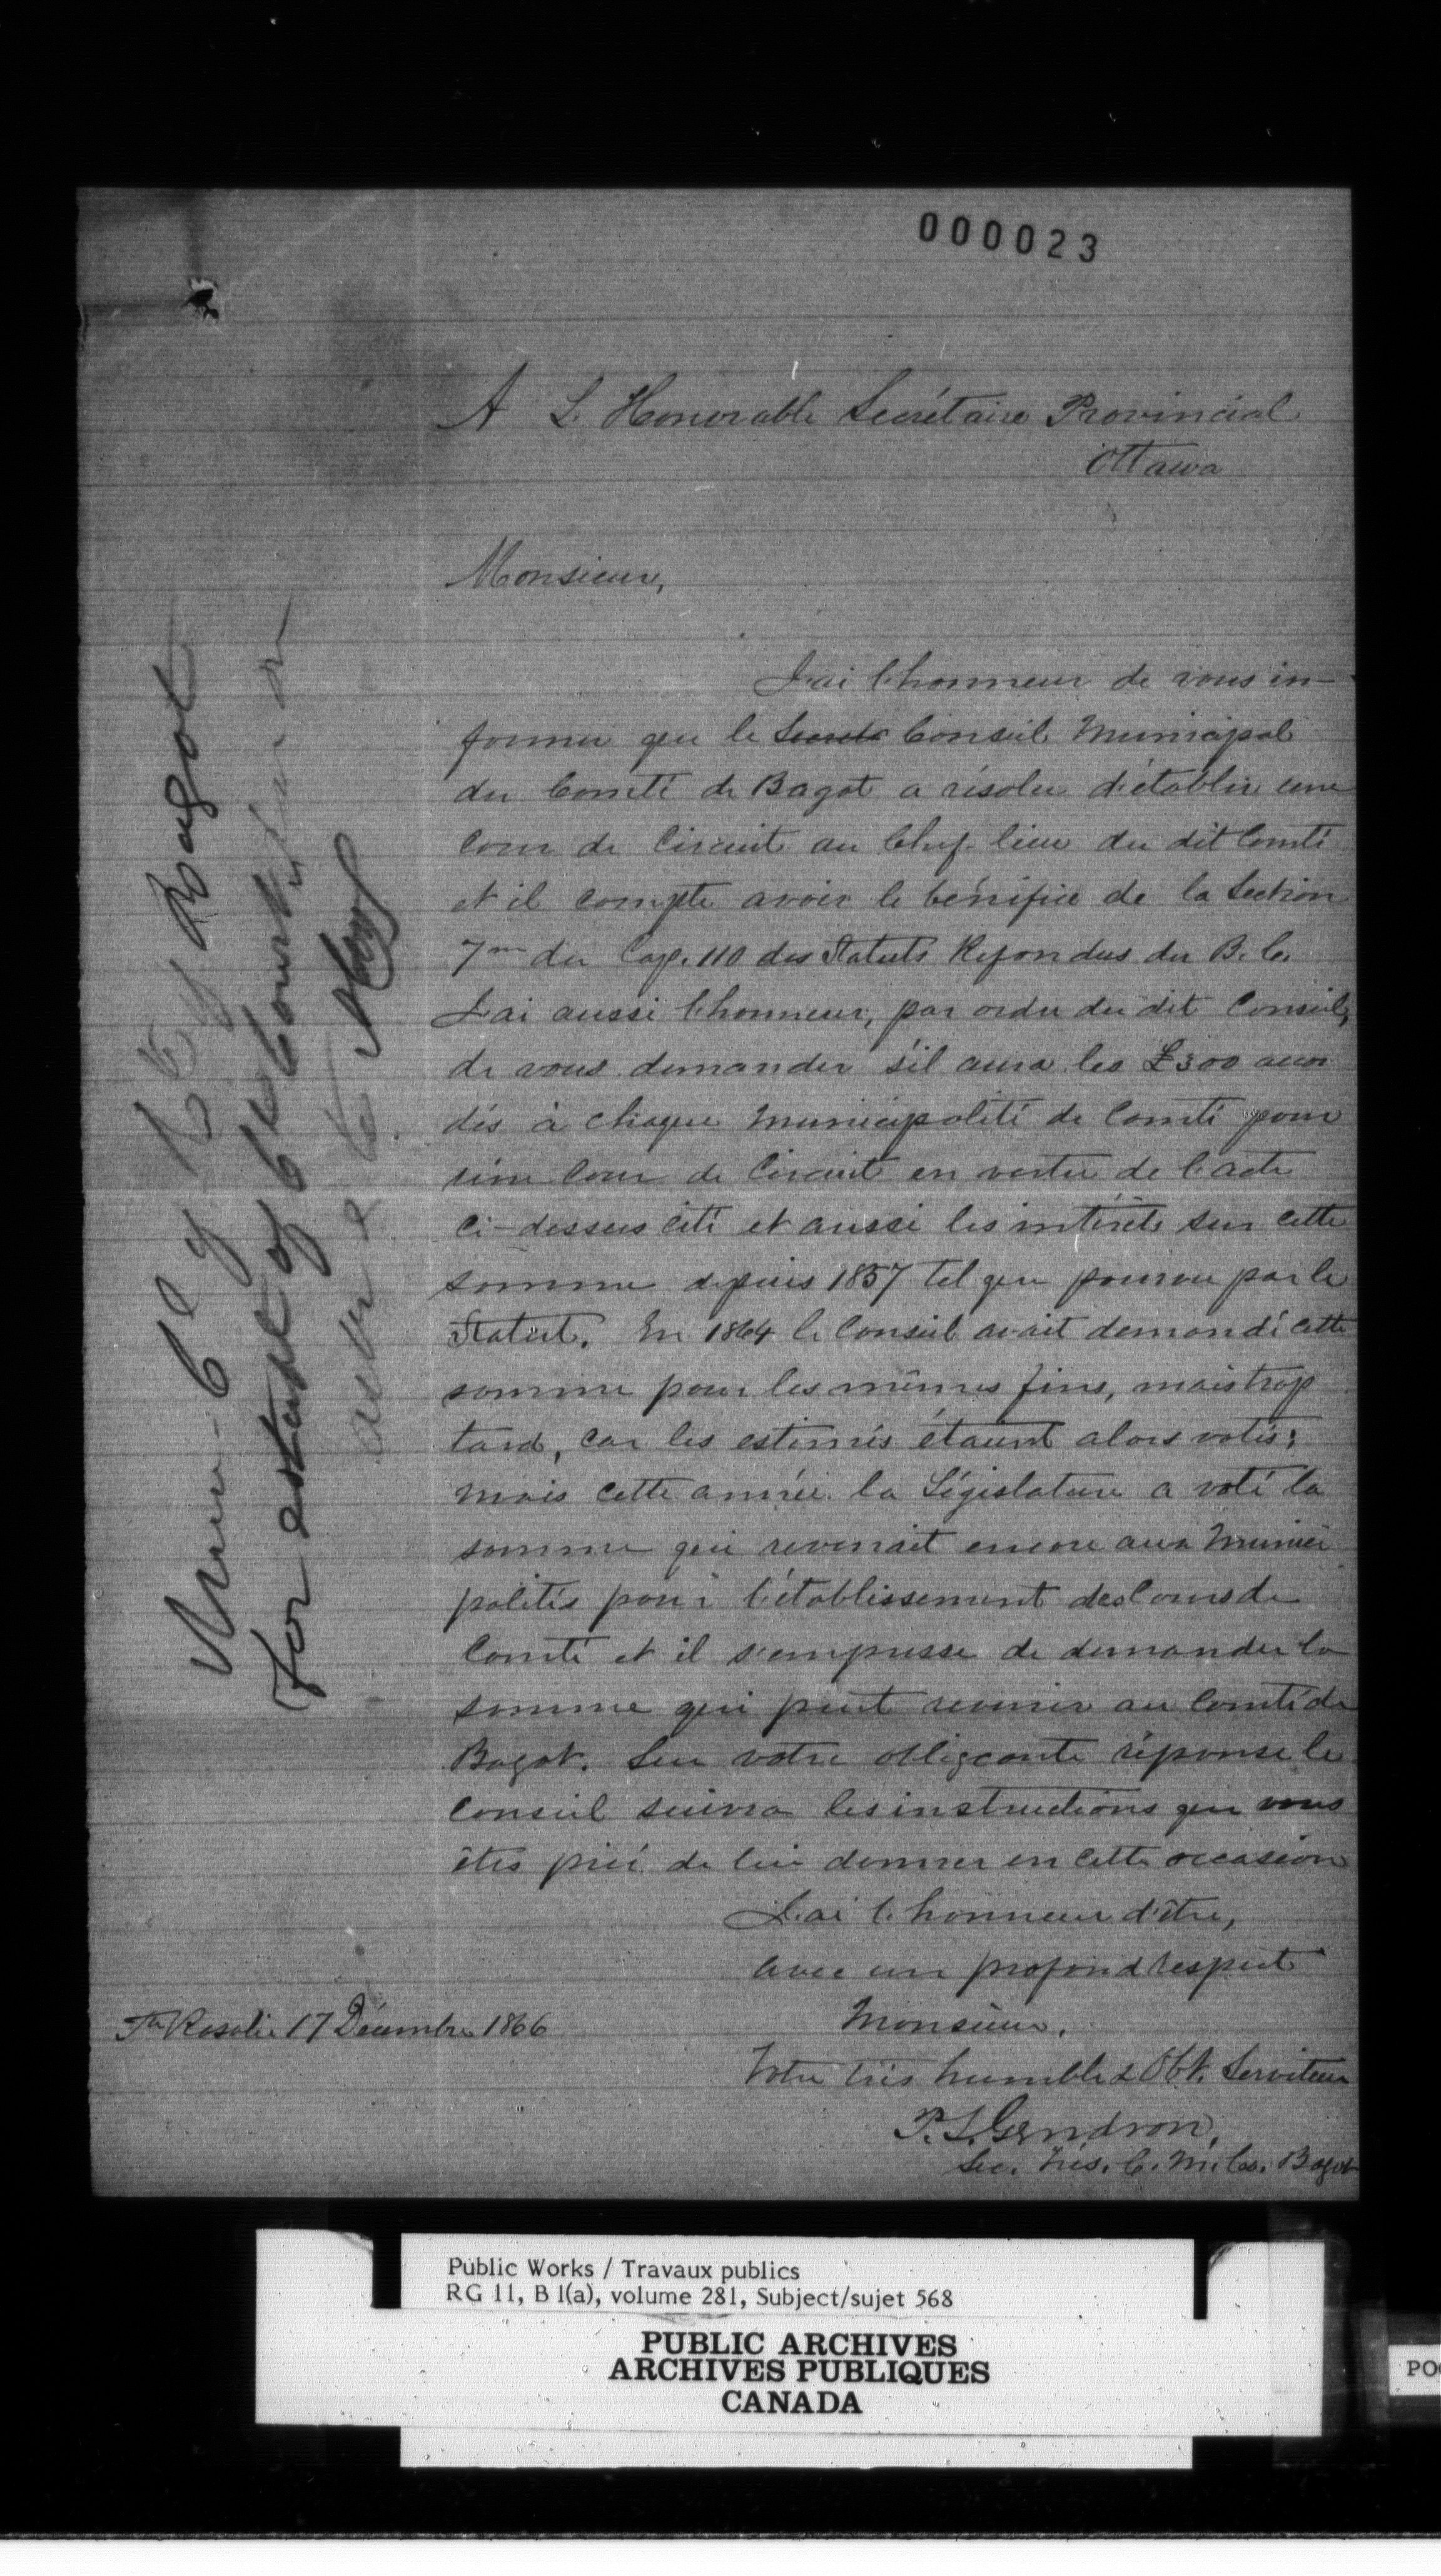 000023
A L'Honorable Secrétaire Provincial
Ottawa
Monsieur,
J'ai l'honneur de vous in-
former que le Conseil Municipal
du Comté de Bagot a résolu d'établir une
Cour de Circuit au Chef-lieu du dit Comté
et il compte avoir le bénéfice de la Section
7me du Cap. 110 des Statuts Refondus du B. C.
J'ai aussi l'honneur, par ordre du dit Conseil,
de vous demander s'il aura les £300 accor
dés à chaque Municipalité de Comté pour
une Cour de Circuit en vertu de l'acte
ci-dessus cité et aussi les intérêts sur cette
somme depuis 1857 tel que pourvu par le
Statut. En 1864 le Conseil avait demandé cette
somme pour les mêmes fins, mais trop
tard, car les estimés étaient alors votés;
mais cette année la Législature a voté la
somme qui revenait encore aux Munici
palités pour l'établissement des Cours de
Comté et il s'empresse de demander la
somme qui peut revenir au Comté de
Bagot. Sur votre obligeante réponse le
Conseil suivra les instructions que vous
êtes prié de lui donner en cette occasion
J'ai l'honneur d'être,
avec un profond respect
Monsieur,
Votre très humble & Obt. Serviteur
P. S. Gendron,
Sec. Trés. C. M. Co. Bagot
Ste Rosalie 17 Décembre 1866
Bagot
for establt of Ct Court
Public Works / Travaux publics
RG 11, B 1(a), volume 281, Subject/sujet 568
PUBLIC ARCHIVES
ARCHIVES PUBLIQUES
CANADA